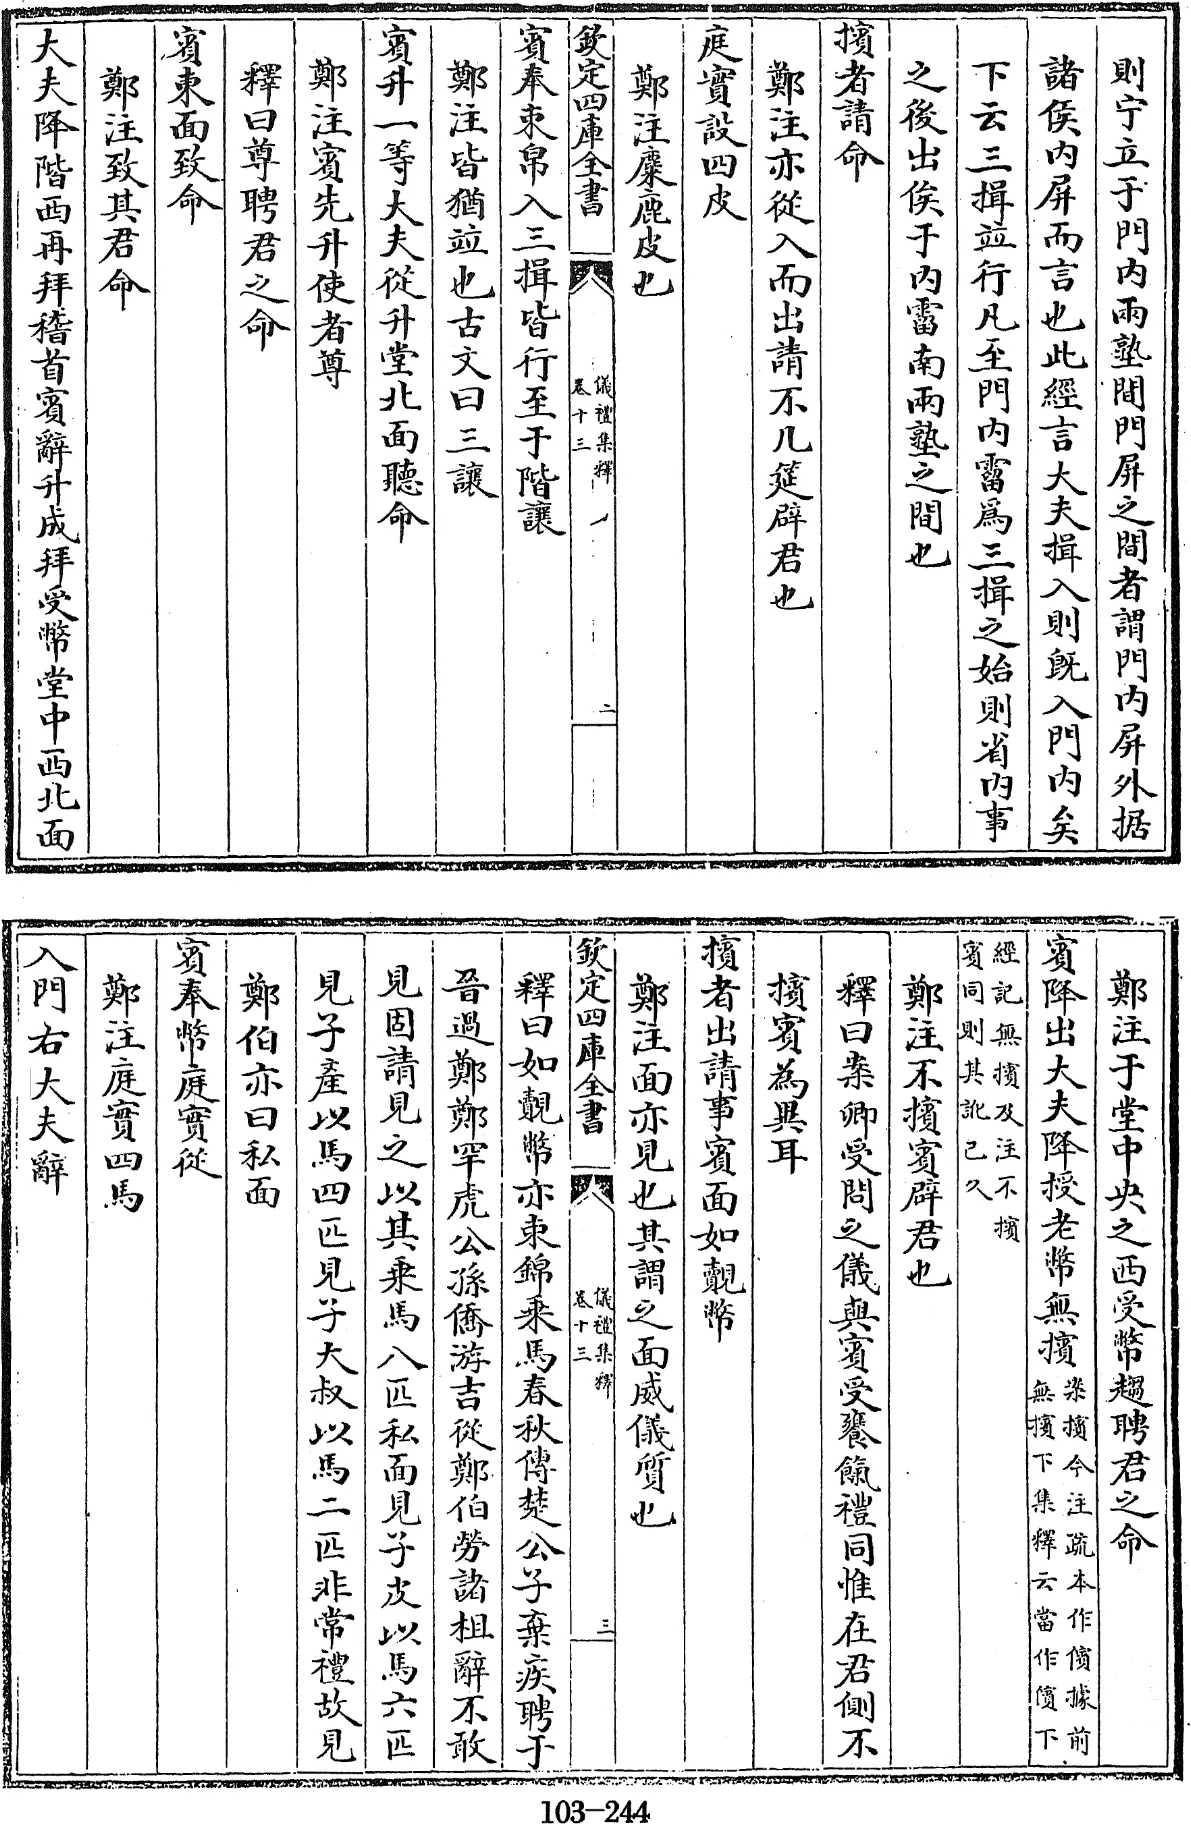 則宁立于門内兩塾間門屏之間者謂門内屏外据
諸侯内屏而言也此經言大夫揖入則既入門内矣
下云三揖竝行凡至門内霤爲三揖之始則省内事
之後出俟于内霤南兩塾之間也
擯者請命
鄭注亦從入而出請不几筵辟君也
庭實設四皮
鄭注麋鹿皮也
欽定四庫全書
儀禮集釋
卷十三
二
賓奉束帛入三揖皆行至于階讓
鄭注皆猶竝也古文曰三讓
賓升一等大夫從升堂北面聽命
鄭注賓先升使者尊
釋曰尊聘君之命
賓東面致命
鄭注致其君命
大夫降階西再拜稽首賓辭升成拜受幣堂中西北面
鄭注于堂中央之西受幣趨聘君之命
賓降出大夫降授老幣無擯案擯今注疏本作儐據前
無擯下集釋云當作儐下
經記無擯及注不擯
賓同則其訛已久
鄭注不擯賓辟君也
釋曰案卿受問之儀與賓受饔餼禮同惟在君側不
擯賓為異耳
擯者出請事賓面如覿幣
鄭注面亦見也其謂之面威儀質也
欽定四庫全書
儀禮集釋
卷十三
三
釋曰如覿幣亦束錦乘馬春秋傳楚公子棄疾聘于
晉過鄭鄭罕虎公孫僑游吉從鄭伯勞諸柤辭不敢
見固請見之以其乘馬八匹私面見子皮以馬六匹
見子產以馬四匹見子大叔以馬二匹非常禮故見
鄭伯亦曰私面
賓奉幣庭實從
鄭注庭實四馬
入門右大夫辭
103-244